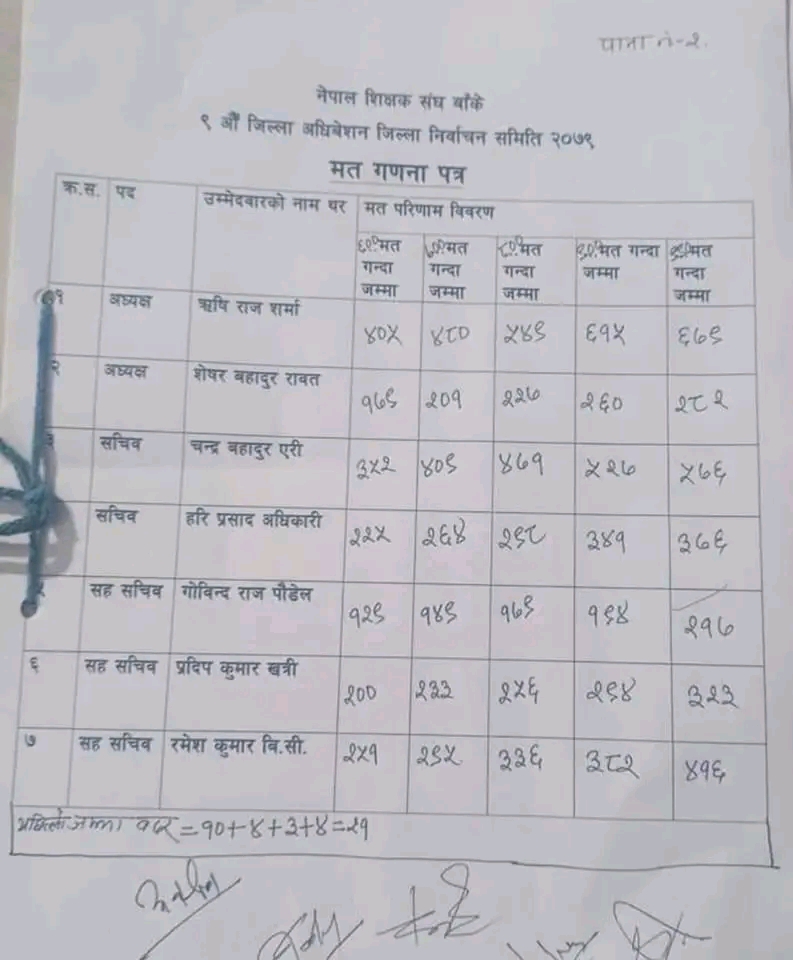 पाना नं-२.
नेपाल शिक्षक संघ बाँके
९ औं जिल्ला अधिबेशन जिल्ला निर्वाचन समिति २०७९
मत गणना पत्र
क्र.स. पद उम्मेदवारको नाम थर मत परिणाम विवरण
६०० मत गन्दा जम्मा ७०० मत गन्दा जम्मा ८०० मत गन्दा जम्मा ९०० मत गन्दा जम्मा मत गन्दा जम्मा
१ अध्यक्ष ऋषि राज शर्मा ४०५ ४८० ५४९ ६१५ ६७९
२ अध्यक्ष शेषर बहादुर रावत १७९ २०१ २२७ २६० २८२
३ सचिव चन्द्र बहादुर एरी ३५२ ४०९ ४७१ ५२७ ५७६
सचिव हरि प्रसाद अधिकारी २२५ २६४ २९८ ३४१ ३७६
सह सचिव गोविन्द राज पौडेल १२९ १४९ १७९ १९४ २१७
६ सह सचिव प्रदिप कुमार खत्री २०० २३३ २५६ २९४ ३२३
७ सह सचिव रमेश कुमार बि.सी. २५१ २९५ ३३६ ३८२ ४१६
जम्मा वदर = १०+४+३+४=२१